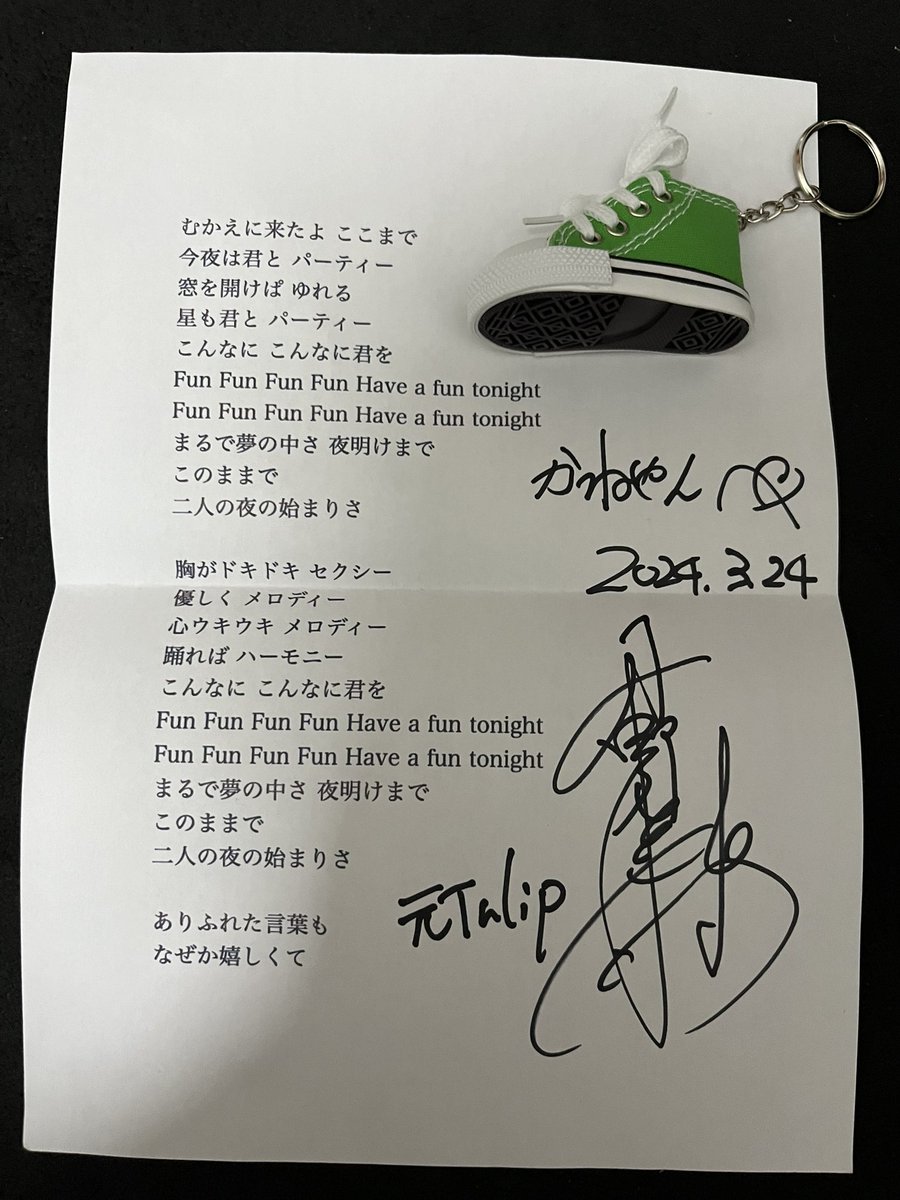 むかえに来たよ ここまで
今夜は君と パーティー
窓を開けば ゆれる
星も君と パーティー
こんなに こんなに君を
Fun Fun Fun Fun Have a fun tonight
Fun Fun Fun Fun Have a fun tonight
まるで夢の中さ 夜明けまで
このままで
二人の夜の始まりさ
胸がドキドキ セクシー
優しく メロディー
心ウキウキ メロディー
踊れば ハーモニー
こんなに こんなに君を
Fun Fun Fun Fun Have a fun tonight
Fun Fun Fun Fun Have a fun tonight
まるで夢の中さ 夜明けまで
このままで
二人の夜の始まりさ
ありふれた言葉も
なぜか嬉しくて
2024.3.24
元Tulip